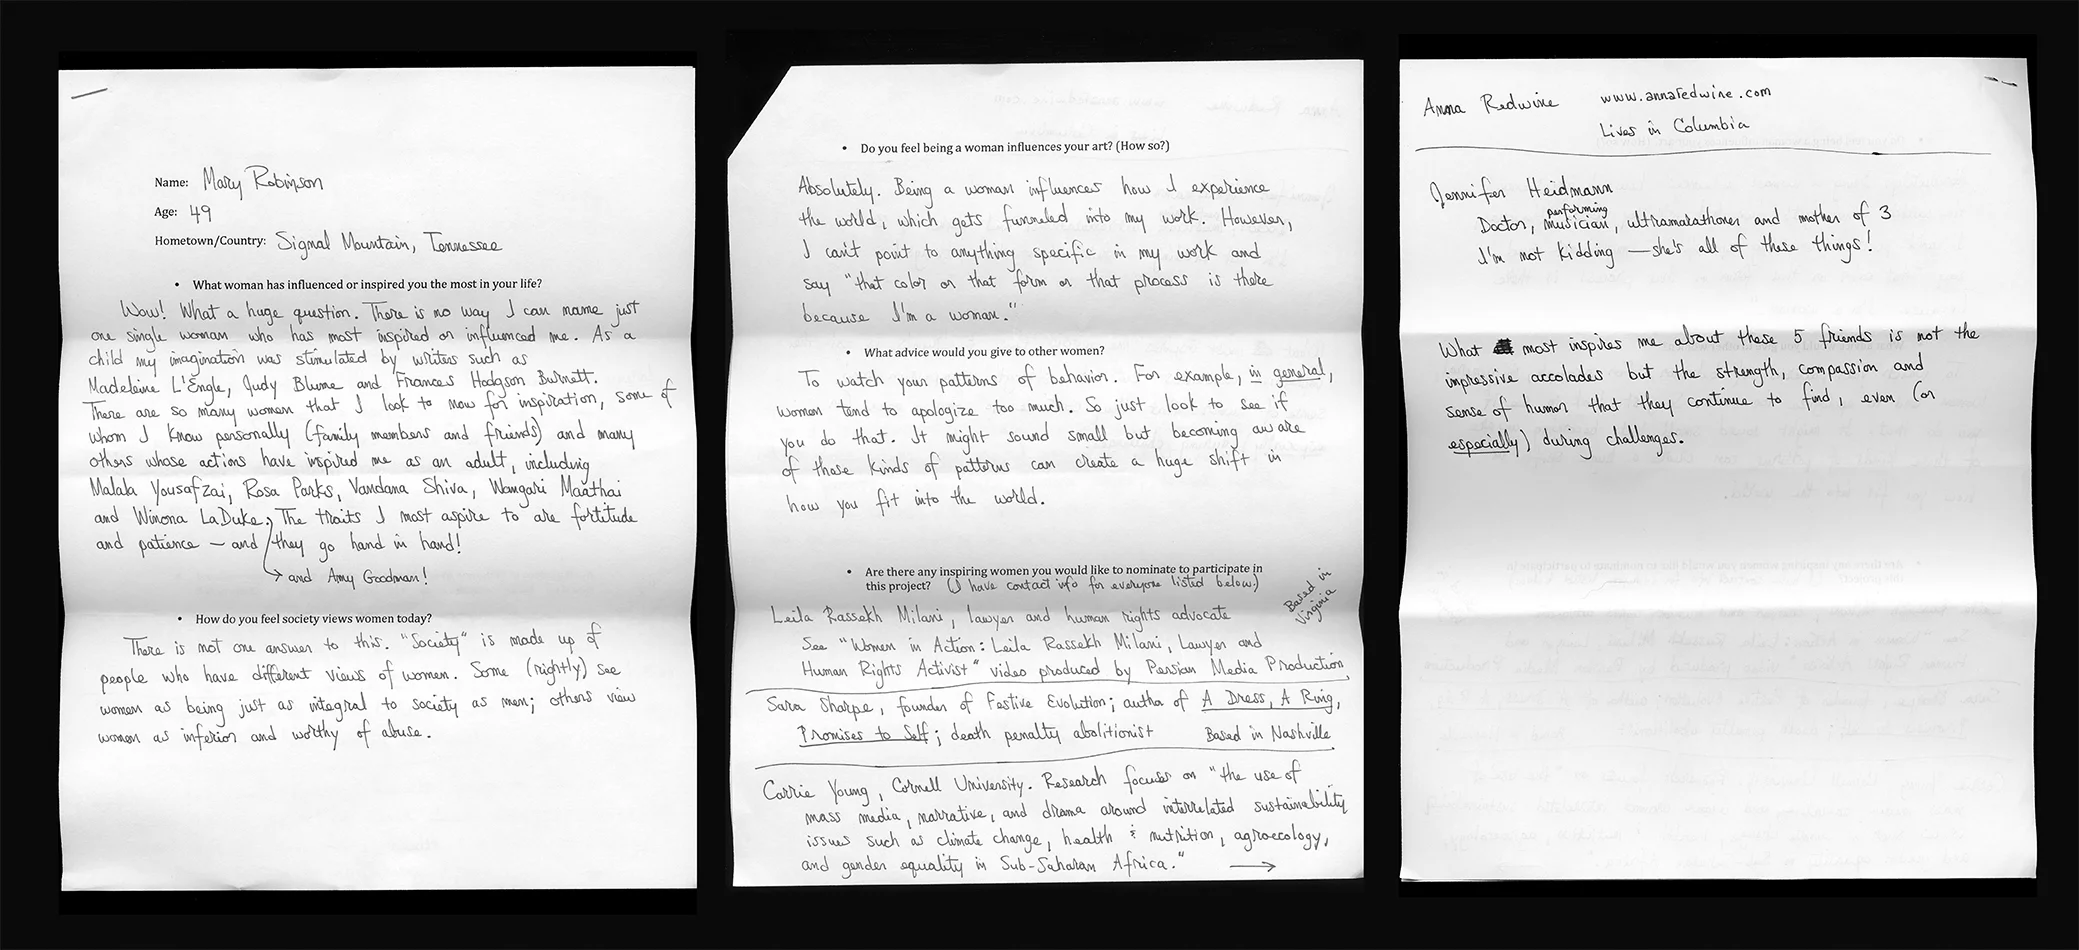 Name: Mary Robinson
Age: 49
Hometown/Country: Signal Mountain, Tennessee
• What woman has influenced or inspired you the most in your life?
Wow! What a huge question. There is no way I can name just
one single woman who has most inspired or influenced me. As a
child my imagination was stimulated by writers such as
Madeleine L'Engle, Judy Blume and Frances Hodgson Burnett.
There are so many women that I look to now for inspiration, some of
whom I know personally (family members and friends) and many
others whose actions have inspired me as an adult, including
Malala Yousafzai, Rosa Parks, Vandana Shiva, Wangari Maathai
and Winona LaDuke. The traits I most aspire to are fortitude
and patience — and they go hand in hand!
→ and Amy Goodman!
• How do you feel society views women today?
There is not one answer to this. "Society" is made up of
people who have different views of women. Some (rightly) see
women as being just as integral to society as men; others view
women as inferior and worthy of abuse.
• Do you feel being a woman influences your art? (How so?)
Absolutely. Being a woman influences how I experience
the world, which gets funneled into my work. However,
I can't point to anything specific in my work and
say "that color or that form or that process is there
because I'm a woman."
• What advice would you give to other women?
To watch your patterns of behavior. For example, in general,
women tend to apologize too much. So just look to see if
you do that. It might sound small but becoming aware
of those kinds of patterns can create a huge shift in
how you fit into the world.
• Are there any inspiring women you would like to nominate to participate in
this project? (I have contact info for everyone listed below.)
Leila Rassekh Milani, lawyer and human rights advocate
Based in
Virginia
See "Women in Action: Leila Rassekh Milani, Lawyer and
Human Rights Activist" video produced by Persian Media Production
Sara Sharpe, founder of Festive Evolution; author of A Dress, A Ring,
Promises to Self; death penalty abolitionist Based in Nashville
Carrie Young, Cornell University. Research focuses on "the use of
mass media, narrative, and drama around interrelated sustainability
issues such as climate change, health & nutrition, agroecology,
and gender equality in Sub-Saharan Africa." →
Anna Redwine www.annaredwine.com
Lives in Columbia
Jennifer Heidmann
performing
Doctor, musician, ultramarathoner and mother of 3
I'm not kidding — she's all of these things!
What most inspires me about these 5 friends is not the
impressive accolades but the strength, compassion and
sense of humor that they continue to find, even (or
especially) during challenges.